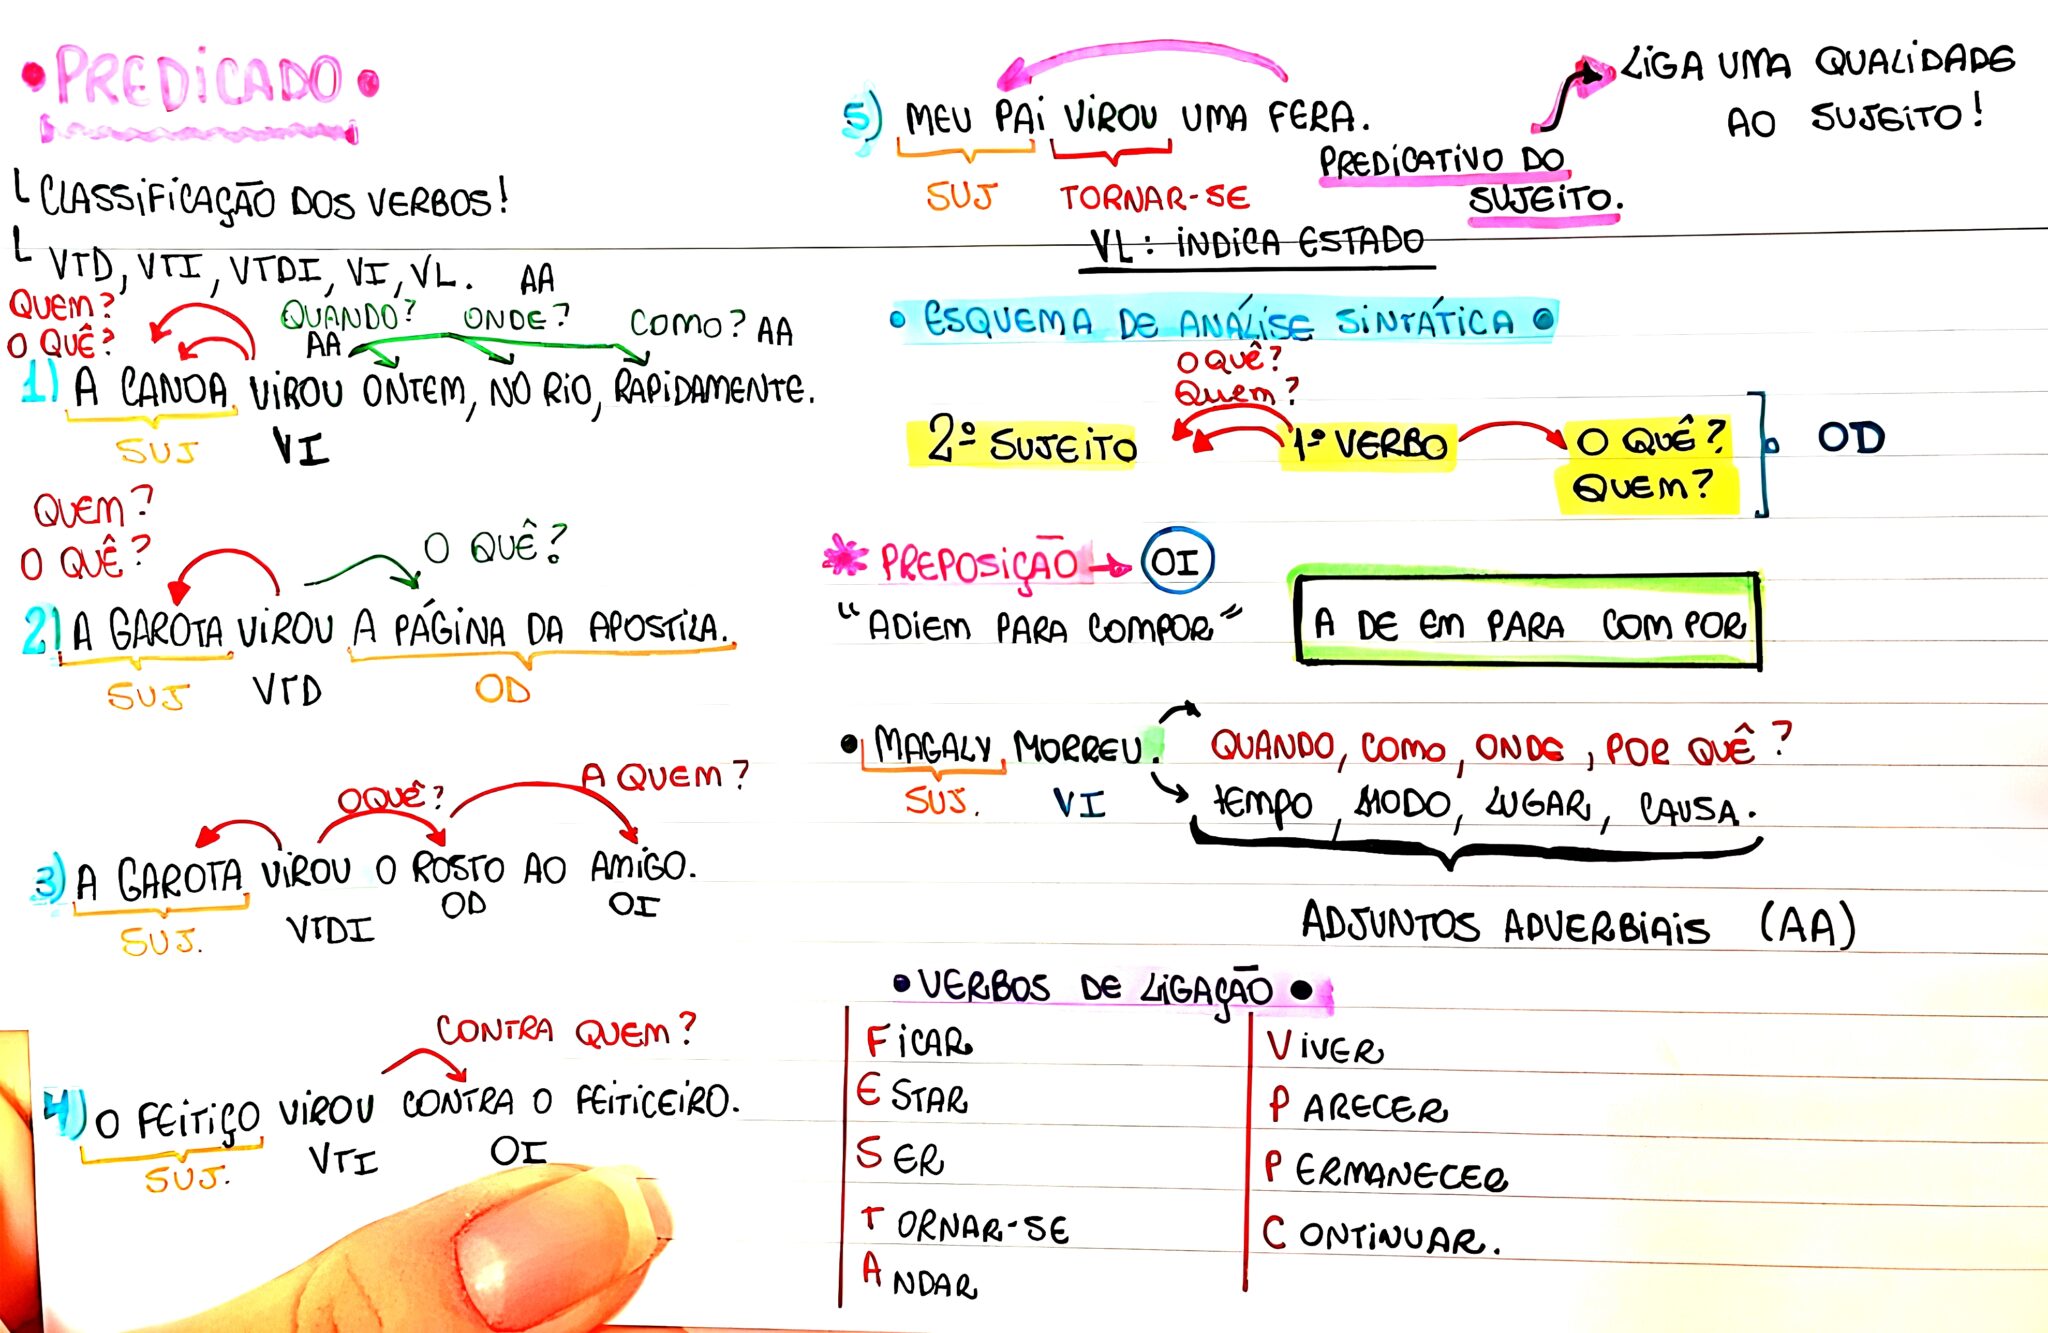 •PREDICADO•
CLASSIFICAÇÃO DOS VERBOS!
VTD, VTI, VTDI, VI, VL. AA
QUEM? QUANDO? ONDE? COMO? AA
O QUÊ? AA
1) A CANOA VIROU ONTEM, NO RIO, RAPIDAMENTE.
SUJ VI
QUEM?
O QUÊ? O QUÊ?
2) A GAROTA VIROU A PÁGINA DA APOSTILA.
SUJ VTD OD
O QUÊ? A QUEM?
3) A GAROTA VIROU O ROSTO AO AMIGO.
SUJ. VTDI OD OI
CONTRA QUEM?
4) O FEITIÇO VIROU CONTRA O FEITICEIRO.
SUJ. VTI OI
5) MEU PAI VIROU UMA FERA.
SUJ TORNAR-SE
VL: INDICA ESTADO
PREDICATIVO DO
SUJEITO.
LIGA UMA QUALIDADE
AO SUJEITO!
• ESQUEMA DE ANÁLISE SINTÁTICA •
O QUÊ?
Quem?
2º SUJEITO 1º VERBO O QUÊ? OD
QUEM?
* PREPOSIÇÃO → OI
"ADIEM PARA COMPOR" A DE EM PARA COM POR
• MAGALY MORREU. QUANDO, COMO, ONDE, POR QUÊ?
SUJ. VI TEMPO, MODO, LUGAR, CAUSA.
ADJUNTOS ADVERBIAIS (AA)
• VERBOS DE LIGAÇÃO •
FICAR
ESTAR
SER
TORNAR-SE
ANDAR
VIVER
PARECER
PERMANECER
CONTINUAR.